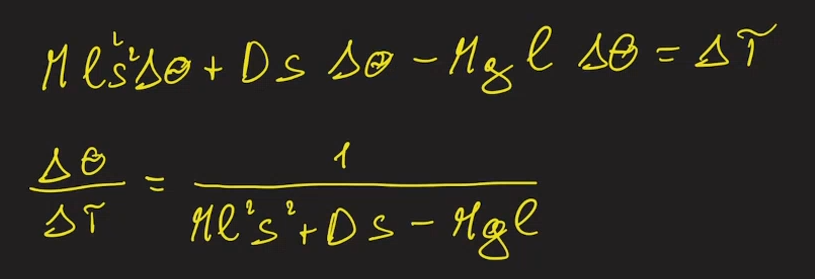 Ml²s²Δθ + Ds Δθ − Mgl Δθ = ΔT
Δθ/ΔT = 1/(Ml²s² + Ds − Mgl)